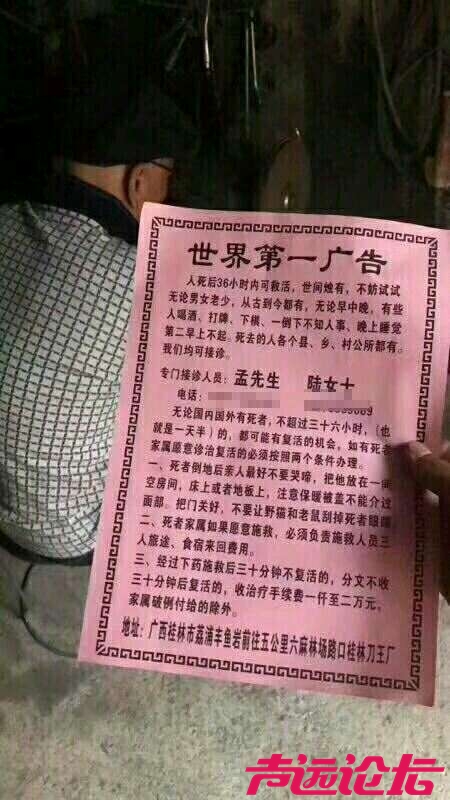 世界第一广告
人死后36小时内可救活，世间烛有，不妨试试
无论男女老少，从古到今都有，无论早中晚，有些
人喝酒、打牌、下棋、一倒下不知人事、晚上睡觉
第二早上不起。死去的人各个县、乡、村公所都有。
我们均可接诊。
专门接诊人员：孟先生 陆女士
电话：
无论国内国外有死者，不超过三十六小时，（也
就是一天半）的，都可能有复活的机会，如有死者
家属愿意诊治复活的必须按照两个条件办理。
一、死者倒地后亲人最好不要哭啼，把他放在一间
空房间，床上或者地板上，注意保暖被盖不能介过
面部。把门关好，不要让野猫和老鼠刮掉死者眼睛
二、死者家属如果愿意施救，必须负责施救人员三
人旅途、食宿来回费用。
三、经过下药施救后三十分钟不复活的，分文不收
三十分钟后复活的，收治疗手续费一仟至二万元。
家属破例付给的除外。
地址：广西桂林市荔浦丰鱼岩前往五公里六麻林场路口桂林刀王厂
声远论坛